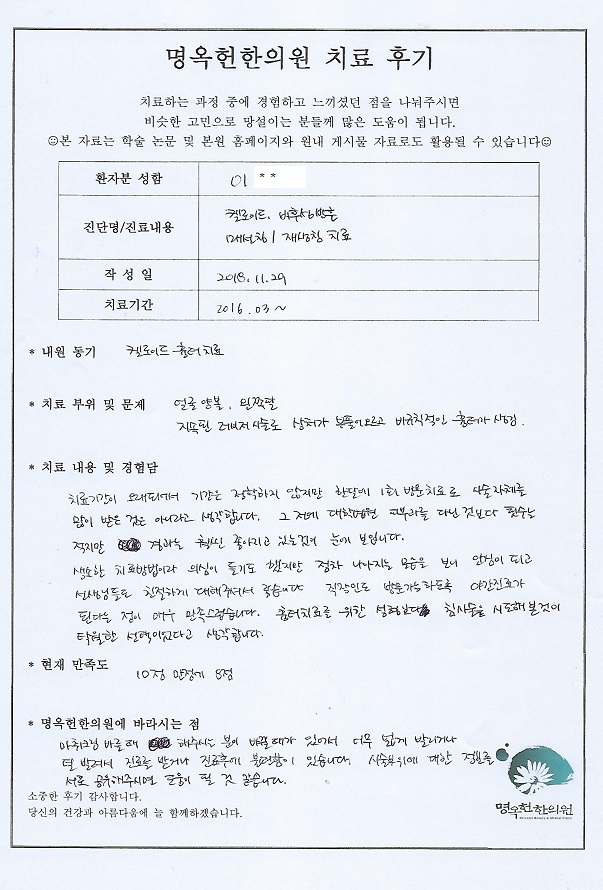 명옥헌한의원 치료 후기
치료하는 과정 중에 경험하고 느끼셨던 점을 나눠주시면
비슷한 고민으로 망설이는 분들께 많은 도움이 됩니다.
☺본 자료는 학술 논문 및 본원 홈페이지와 원내 게시물 자료로도 활용될 수 있습니다☺
환자분 성함 이 * *
진단명/진료내용 켈로이드, 비후성반흔
매선침 / 재생침 치료
작 성 일 2018.11.29
치료기간 2016.03 ~
* 내원 동기 켈로이드 흉터치료
* 치료 부위 및 문제 얼굴 양볼, 왼쪽팔
지속된 레이저시술로 상처가 부풀어오르고 비규칙적인 흉터가 생김.
* 치료 내용 및 경험담
치료기간이 오래되어서 기간은 정확하지 않지만 한달에 1회 방문치료로 시술자체를
많이 받은 것은 아니라고 생각합니다. 그 전에 대학병원 피부과를 다닌 것보다 횟수는
적지만 결과는 훨씬 좋아지고 있는것이 눈에 보입니다.
생소한 치료방법이라 의심이 들기도 했지만 점차 나아지는 모습을 보니 안심이 되고
선생님들도 친절하게 대해주셔서 좋습니다 직장인도 방문가능하도록 야간진료가
된다는 점이 매우 만족스럽습니다. 흉터치료를 위한 성형보다 침시술을 시도해본것이
탁월한 선택이었다고 생각합니다.
* 현재 만족도
10점 만점에 8점
* 명옥헌한의원에 바라시는 점
마취크림 바를때 해주시는 분이 바쁠때가 있어서 너무 넓게 발리거나
덜 발려서 진료를 받거나 진료후에 불편함이 있습니다. 시술부위에 대한 정보를
서로 공유해주시면 도움이 될 것 같습니다.
소중한 후기 감사합니다.
당신의 건강과 아름다움에 늘 함께하겠습니다.
명옥헌한의원